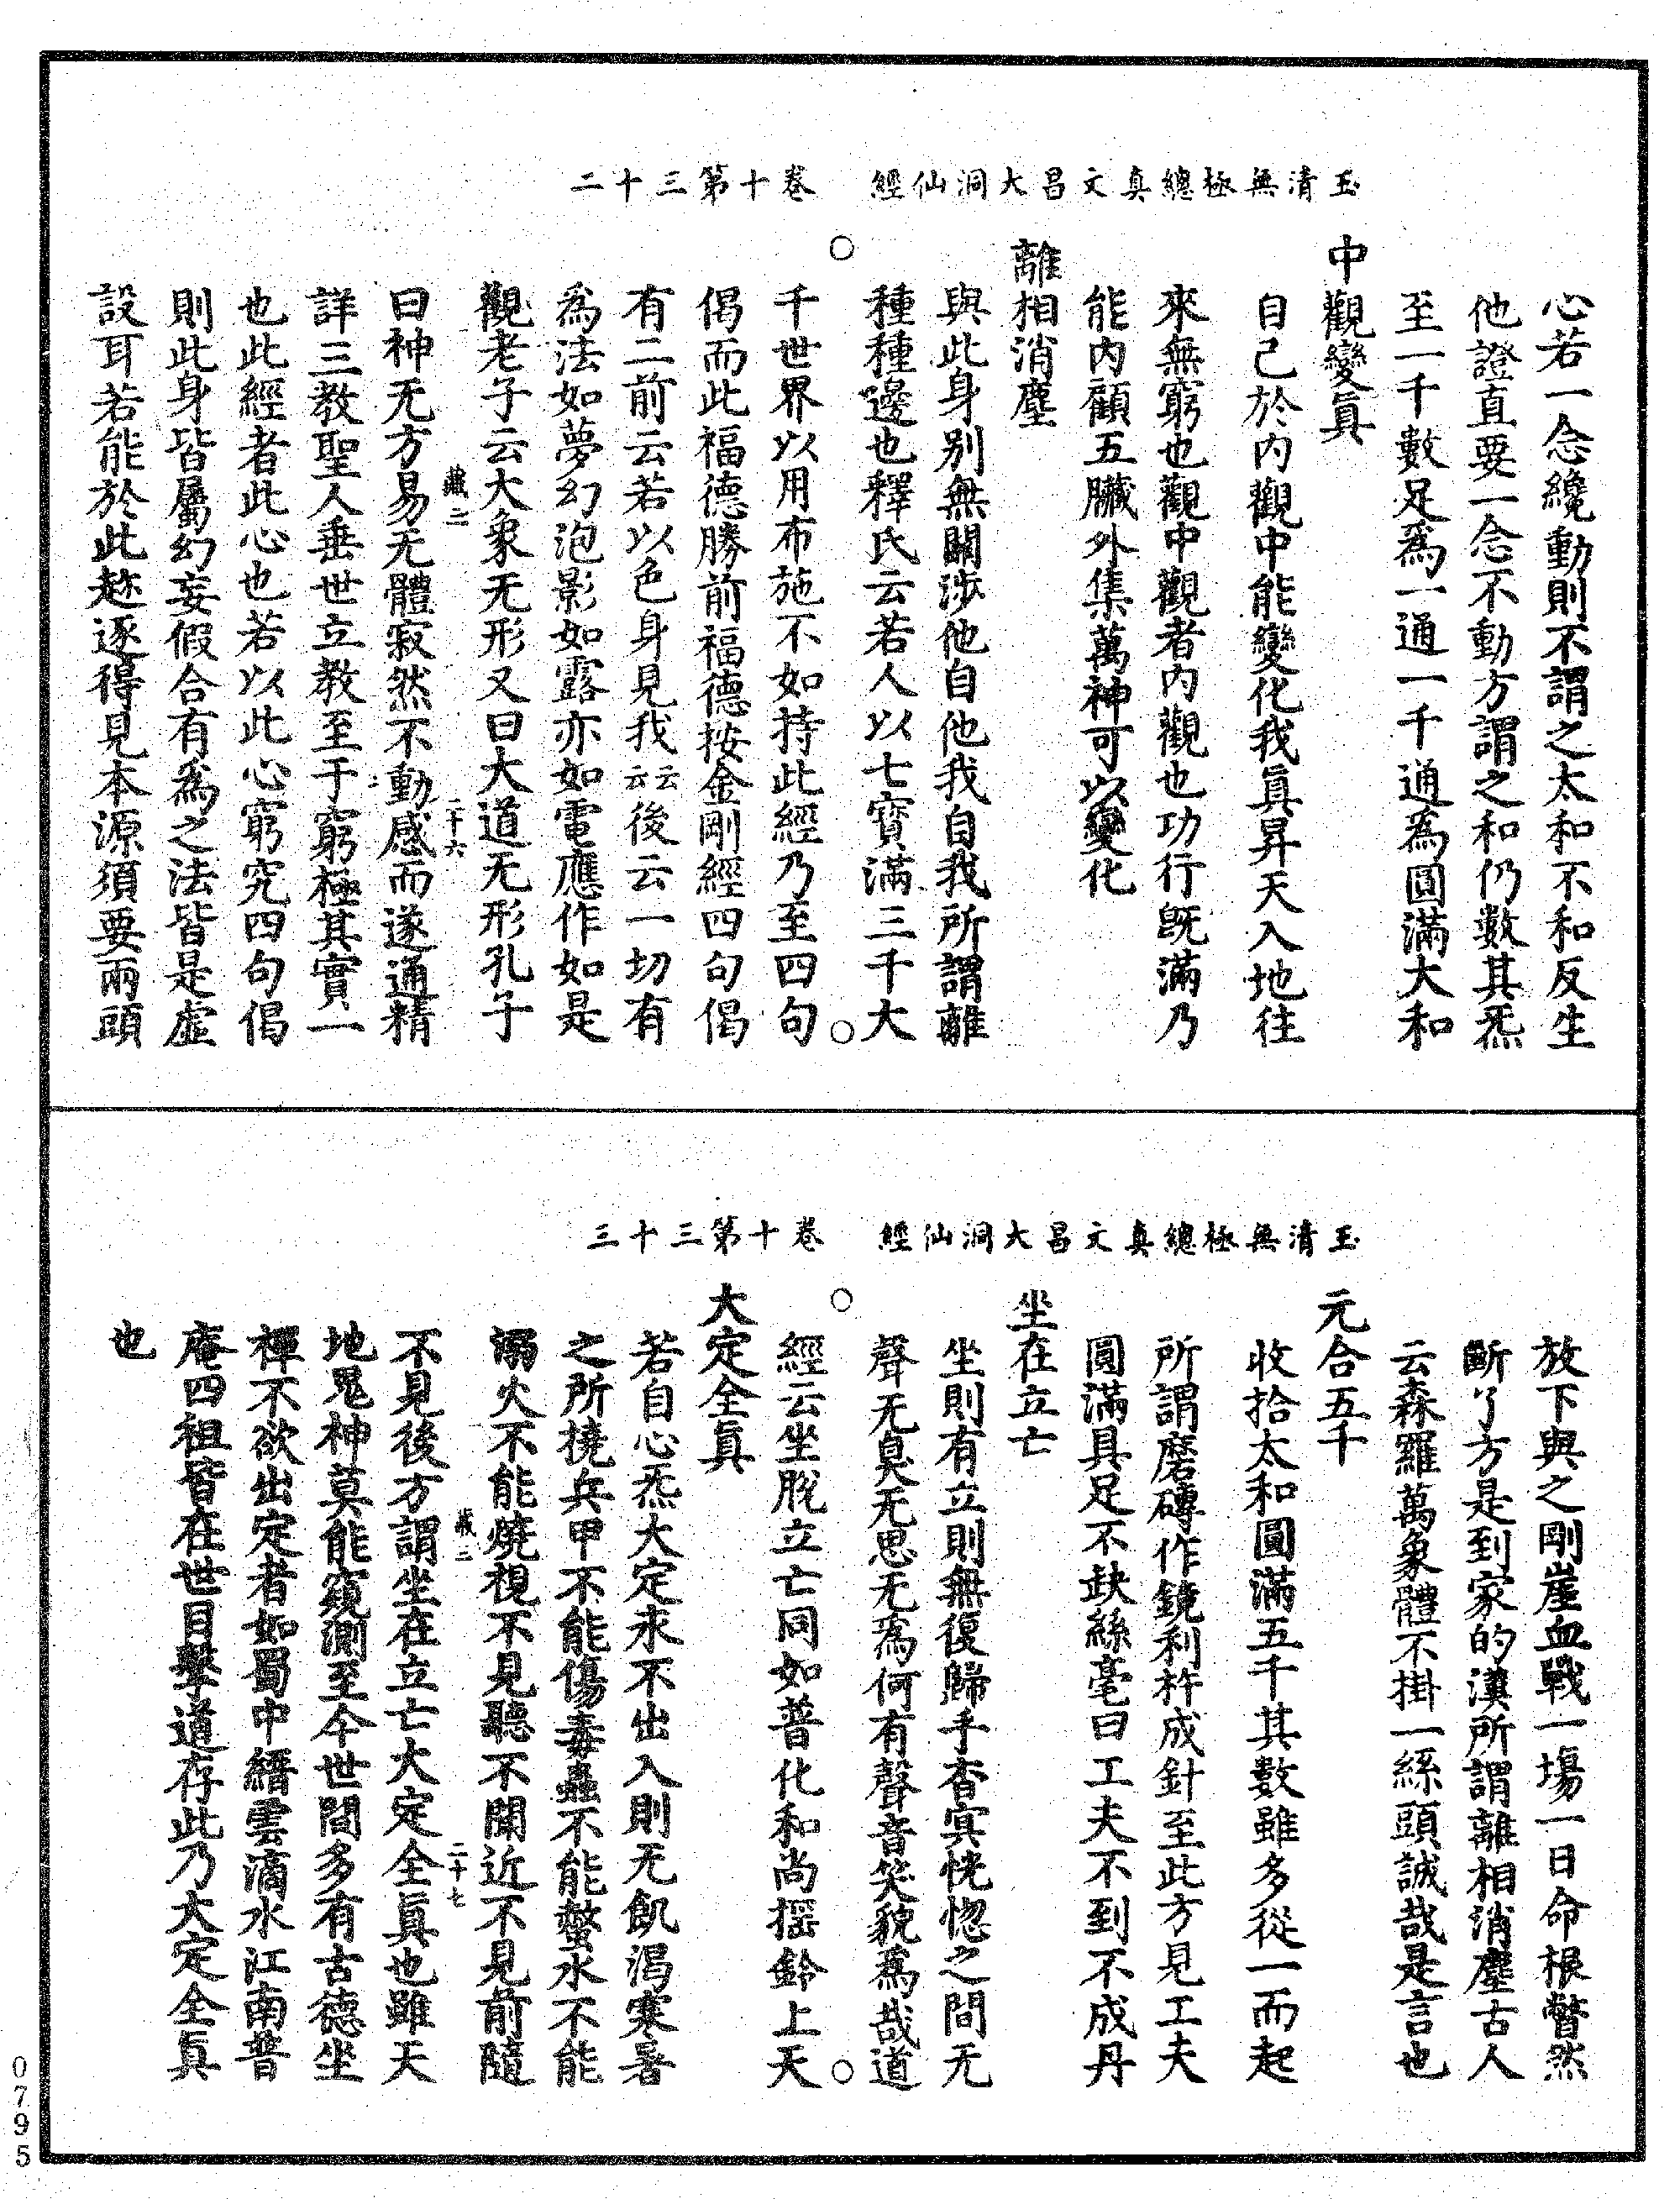 玉清無極總真文昌大洞仙經　卷十第三十二
心若一念纔動則不謂之太和不和反生
他證直要一念不動方謂之和仍數其炁
至一千數足爲一通一千通為圓滿大和
中觀變眞
自己於内觀中能變化我眞昇天入地往
來無窮也觀中觀者内觀也功行旣滿乃
能内顧五臟外集萬神可以變化
離相消塵
與此身别無關涉他自他我自我所謂離
種種邊也釋氏云若人以七寶滿三千大
千世界以用布施不如持此經乃至四句
偈而此福德勝前福德按金剛經四句偈
有二前云若以色身見我云云後云一切有
爲法如夢幻泡影如露亦如電應作如是
觀老子云大象无形又曰大道无形孔子
藏二　二十六
曰神无方易无體寂然不動感而遂通精
詳三教聖人垂世立教至于窮極其實一
也此經者此心也若以此心窮究四句偈
則此身皆屬幻妄假合有爲之法皆是虛
設耳若能於此趂逐得見本源須要兩頭
玉清無極總真文昌大洞仙經　卷十第三十三
放下與之剛崖血戰一塲一日命根瞥然
斷了方是到家的漢所謂離相消塵古人
云森羅萬象體不掛一絲頭誠哉是言也
元合五千
收拾太和圓滿五千其數雖多從一而起
所謂磨磚作鏡利杵成針至此方見工夫
圓滿具足不缺絲毫曰工夫不到不成丹
坐在立亡
坐則有立則無復歸乎杳冥恍惚之間无
聲无臭无思无爲何有聲音笑貌爲哉道
經云坐脫立亡同如普化和尚摇鈴上天
大定全眞
若自心炁大定永不出入則无飢渴寒暑
之所撓兵甲不能傷毒蟲不能螫水不能
溺火不能燒視不見聽不聞近不見前隨
不見後方謂坐在立亡大定全眞也雖天
藏二　二十七
地鬼神莫能窺測至今世間多有古德坐
禪不欲出定者如蜀中縉雲滴水江南普
庵四祖皆在世目擊道存此乃大定全眞
也
0795